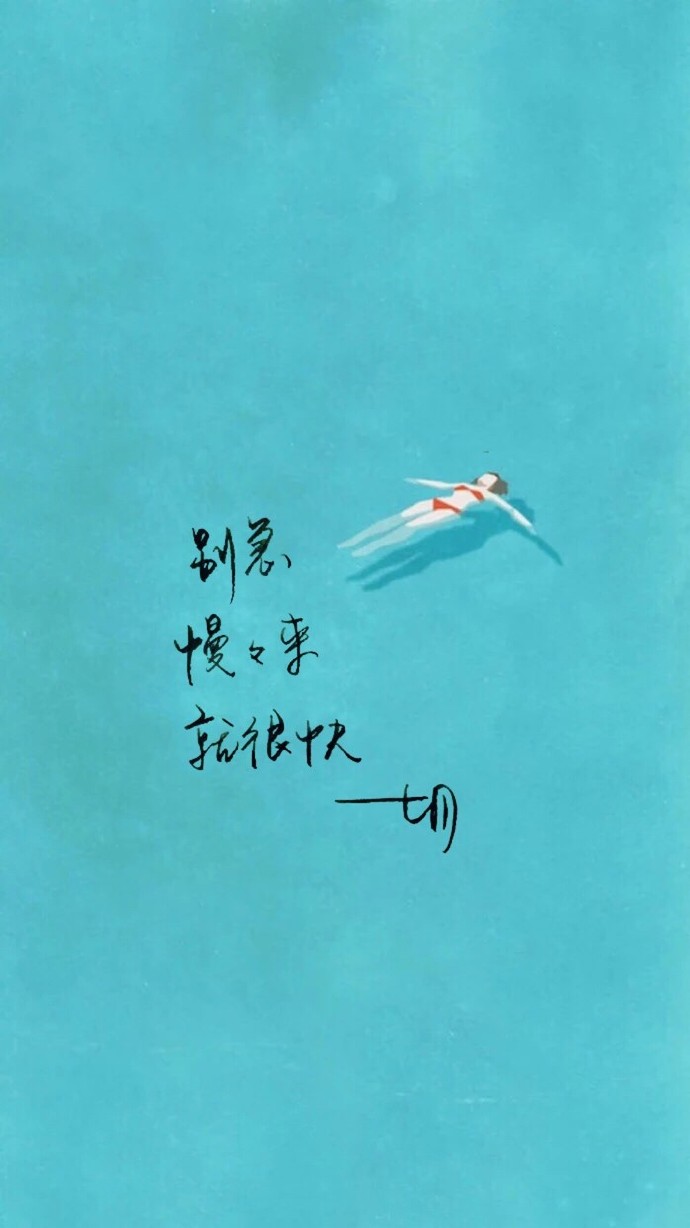 别急
慢々来
就很快
一切